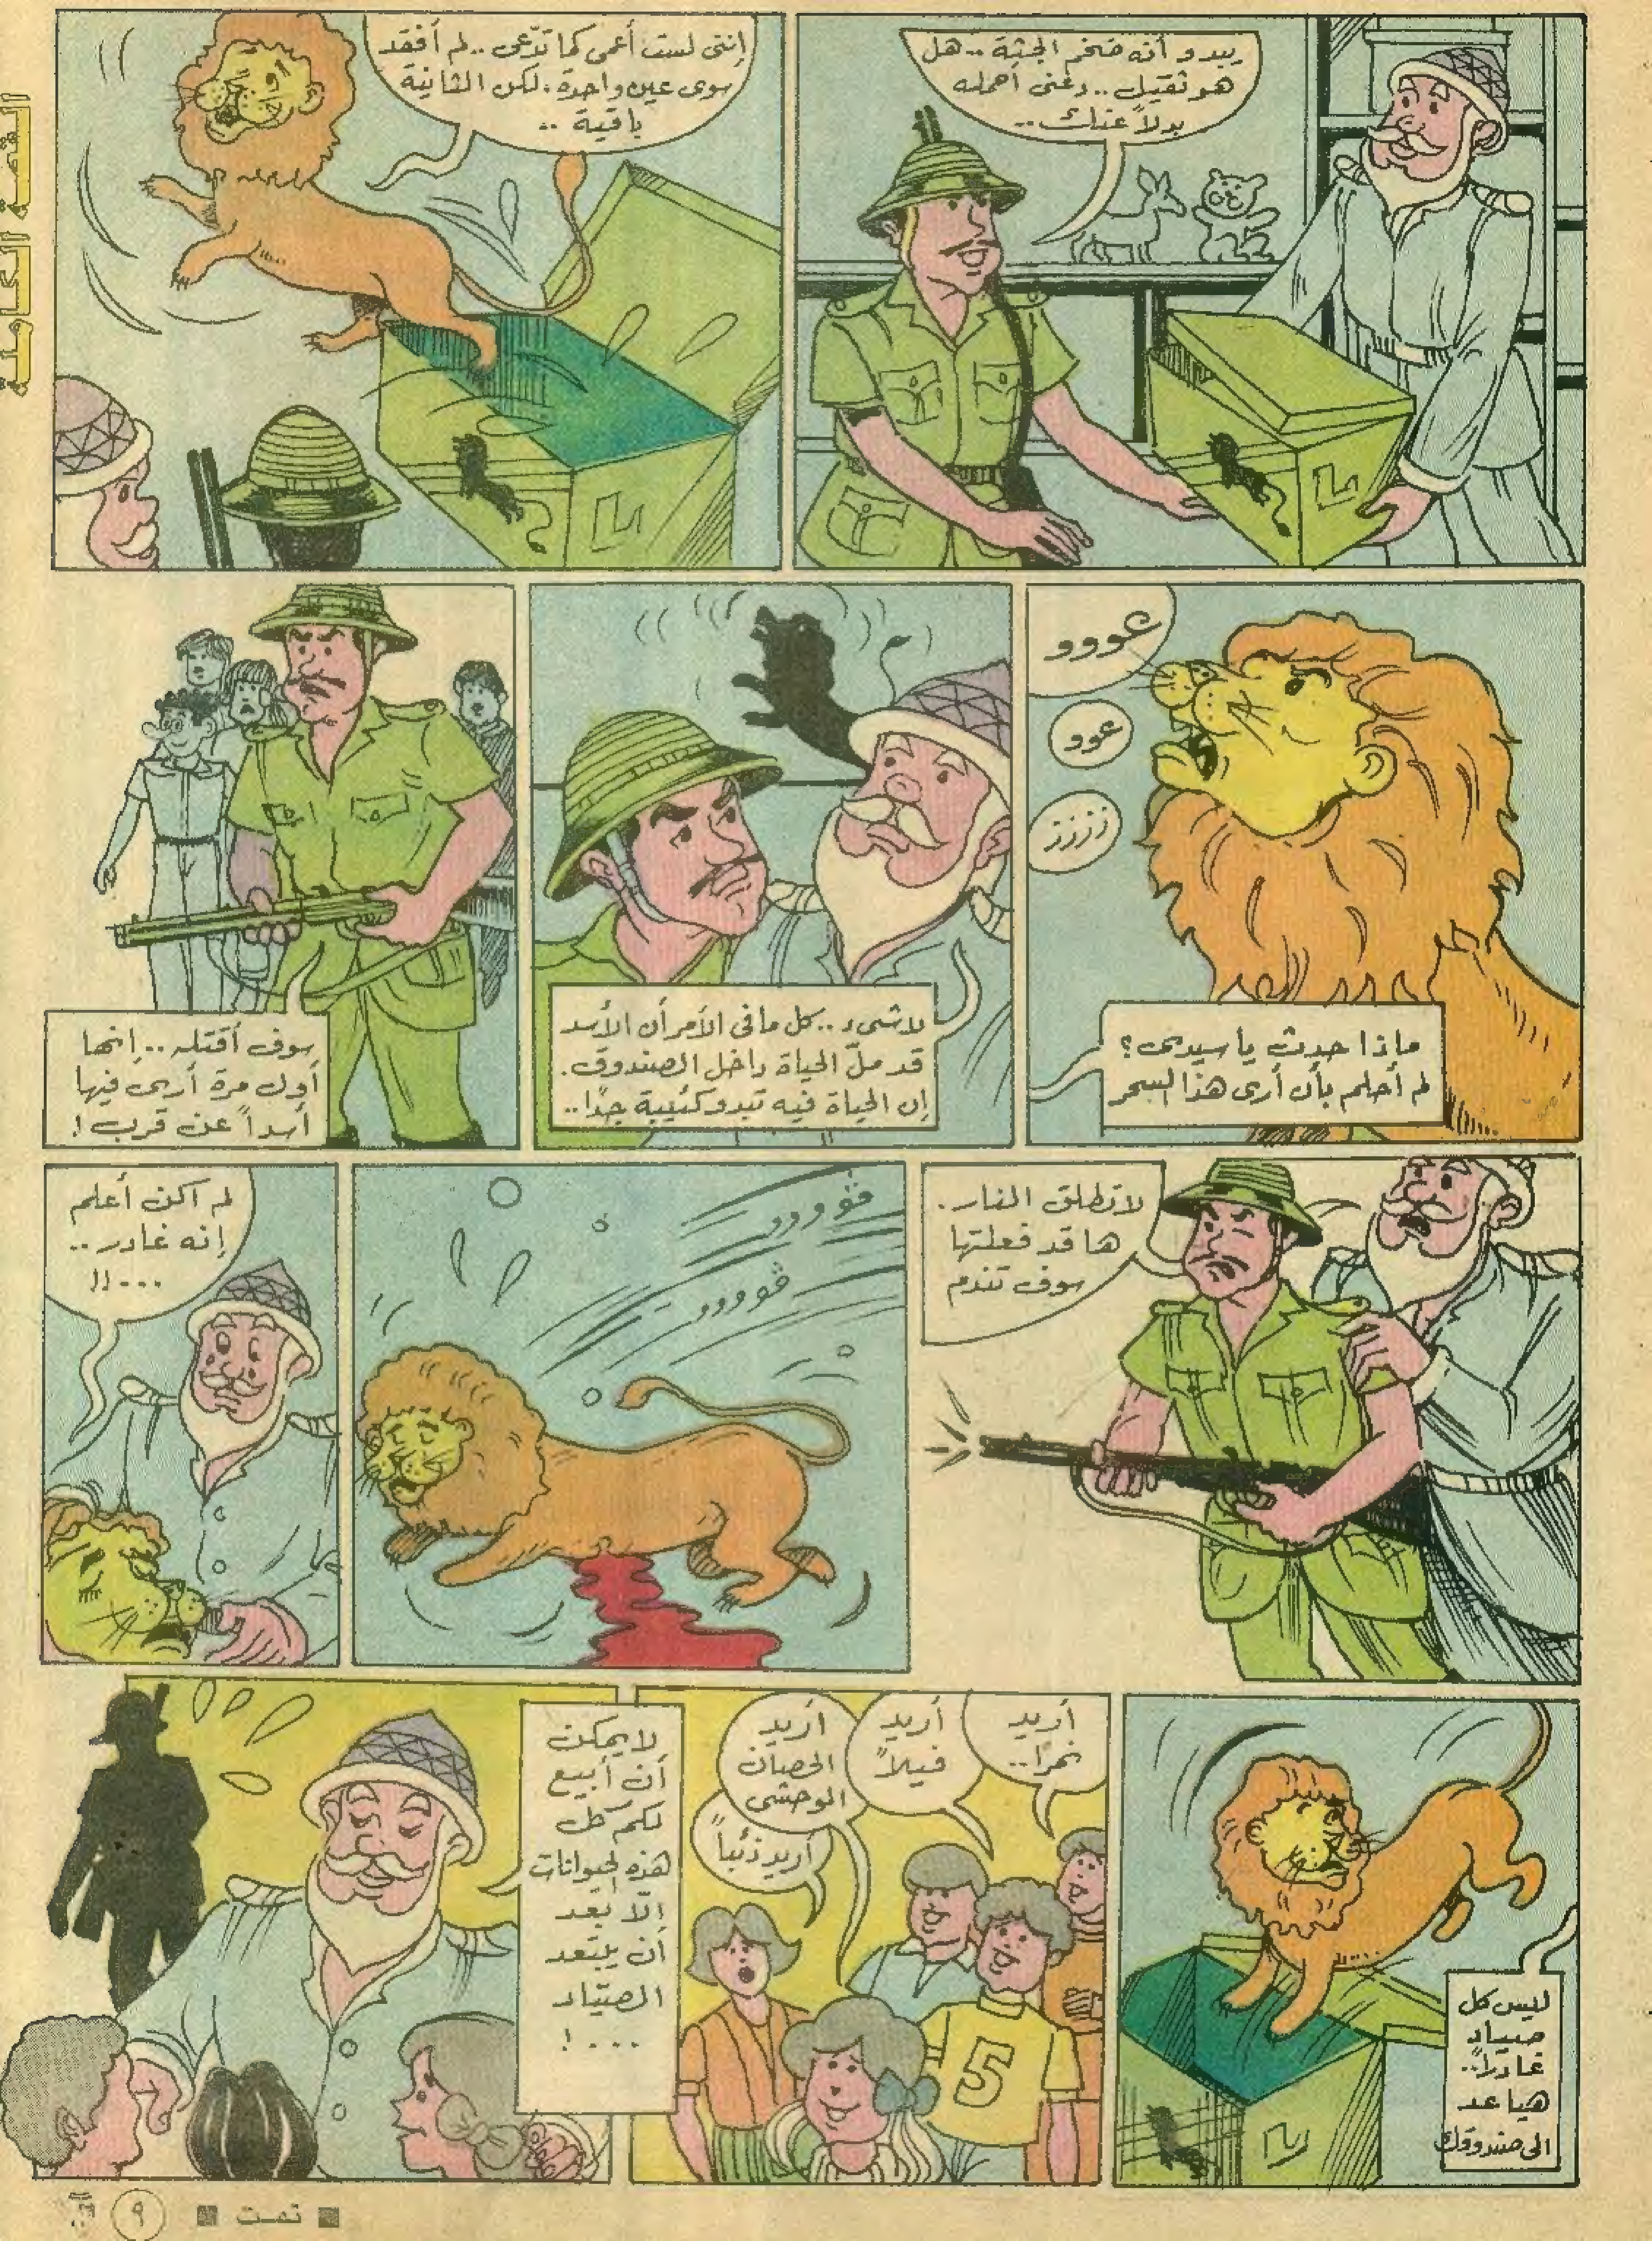 القصة الكاملة
يبدو أنه ضخم الجثة .. هل
هو ثقيل .. دعنى أحمله
بدلاً عنك ..
إننى لست أعمى كما تدّعى .. لم أفقد
سوى عين واحدة . لكن الثانية
باقية ..
عووو
عوو
زززز
ماذا حدث يا سيدى ؟
لم أحلم بأن أرى هذا السحر
لا شىء .. كل ما فى الأمر أن الأسد
قد ملّ الحياة داخل الصندوق .
إن الحياة فيه تبدو كئيبة جدًا ..
سوف أقتله .. إنها
أول مرة أرى فيها
أسداً عن قرب !
لا تطلق النار .
ها قد فعلتها
سوف تندم
ڤووووو
ڤوووو
لم أكن أعلم
إنه غادر ..
... !!
ليس كل
صياد
غادراً ..
هيا عد
الى صندوقك
أريد
نمرا ..
أريد
فيلاً
أريد
الحصان
الوحشى
أريد ذئباً
لا يمكن
أن أبيع
لكم كل
هذه الحيوانات
إلا بعد
أن يبتعد
الصيّاد
... !
■ تمت ■
٩